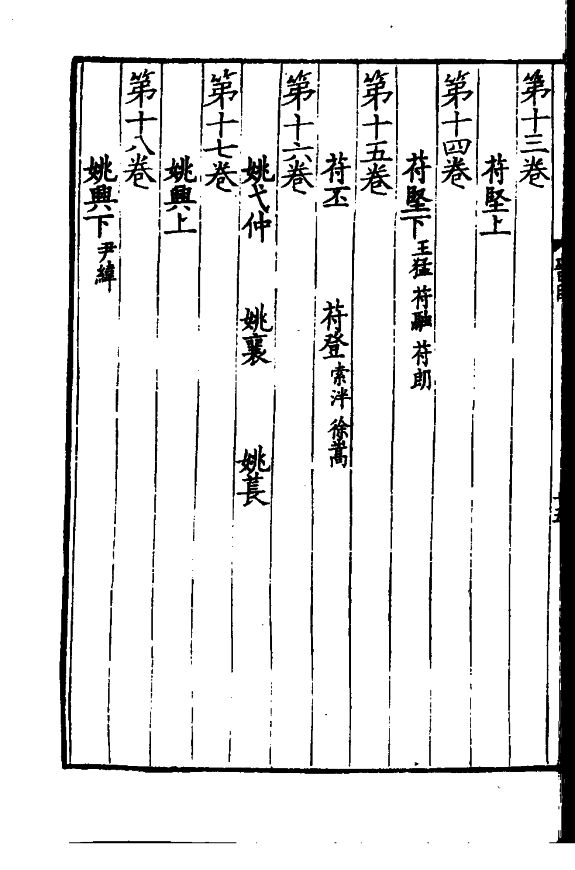 第十三卷
苻堅上
第十四卷
苻堅下 王猛 苻融 苻朗
第十五卷
苻丕 苻登 索泮 徐嵩
第十六卷
姚弋仲 姚襄 姚萇
第十七卷
姚興上
第十八卷
姚興下 尹緯